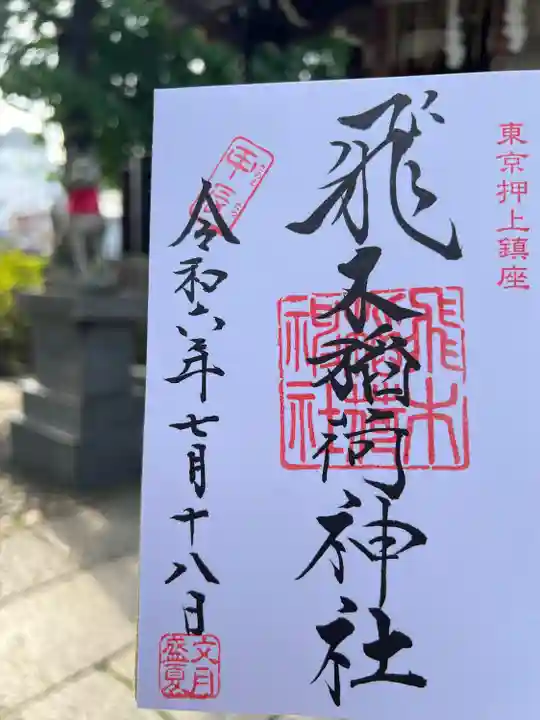 東京押上鎮座
飛木稲荷神社
飛木
稲荷
神社
令和六年七月十八日
甲辰
文月
盛夏